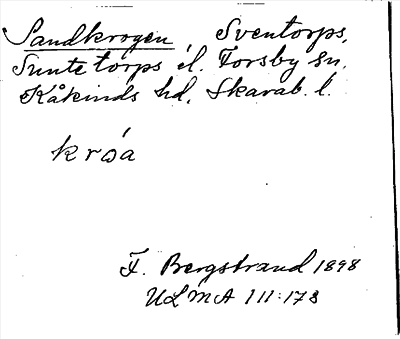 Sandkrogen, Sventorps,
Suntetorps el. Forsby sn.
Kåkinds hd. Skarab. l.
króa
F. Bergstrand 1898
ULMA 111:173